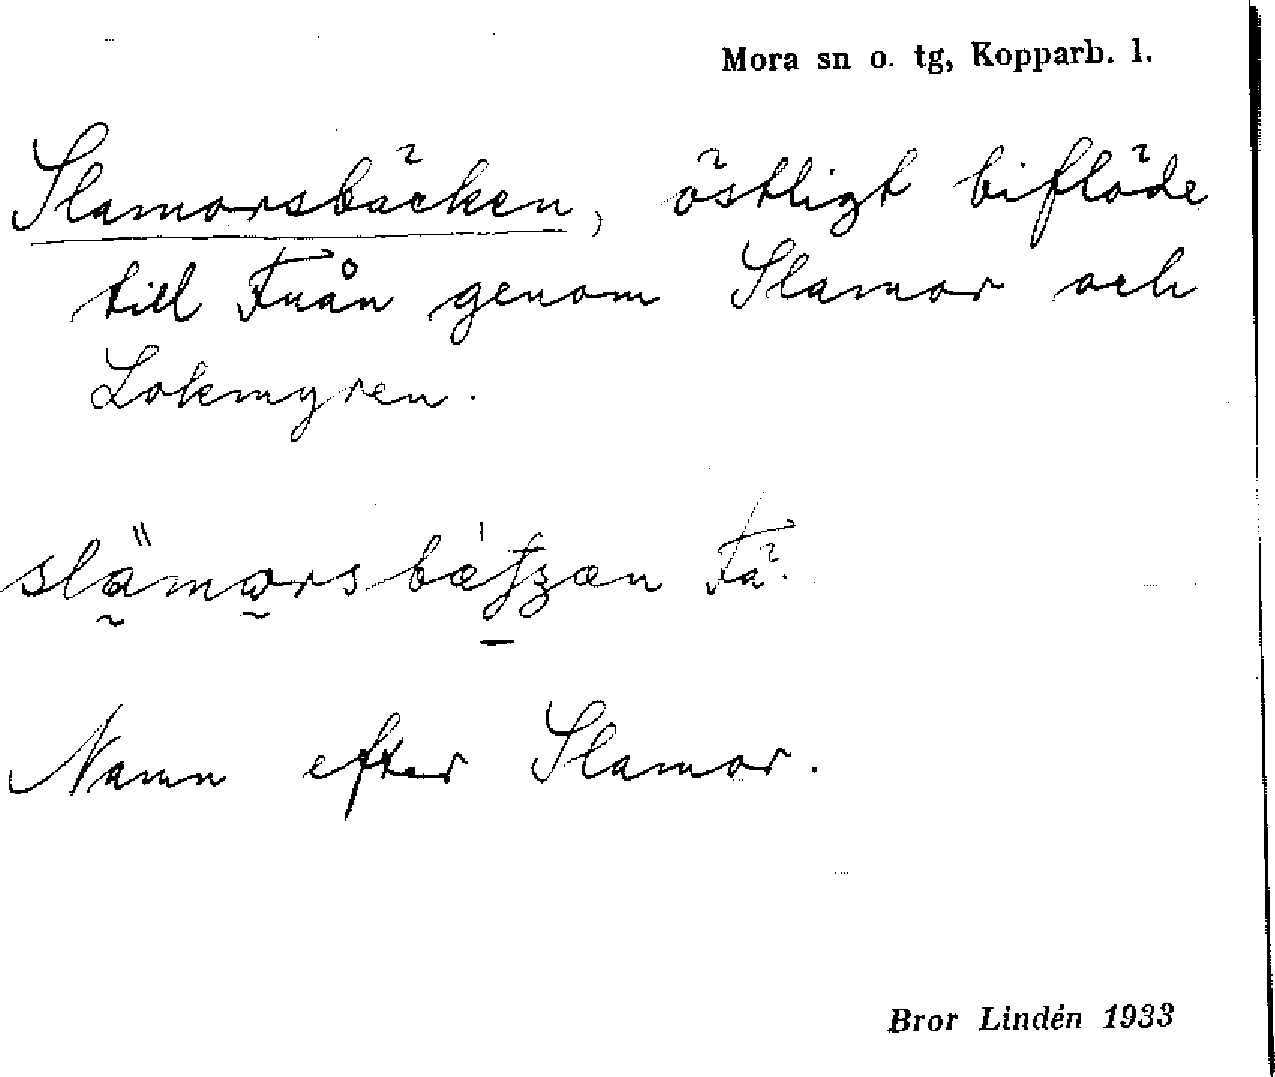 Mora sn o. tg, Kopparb. l.
Slamorsbäcken, östligt biflöde
till Fuån genom Slamor och
Lokmyren.
Fä.
Namn efter Slamor.
Bror Lindén 1933